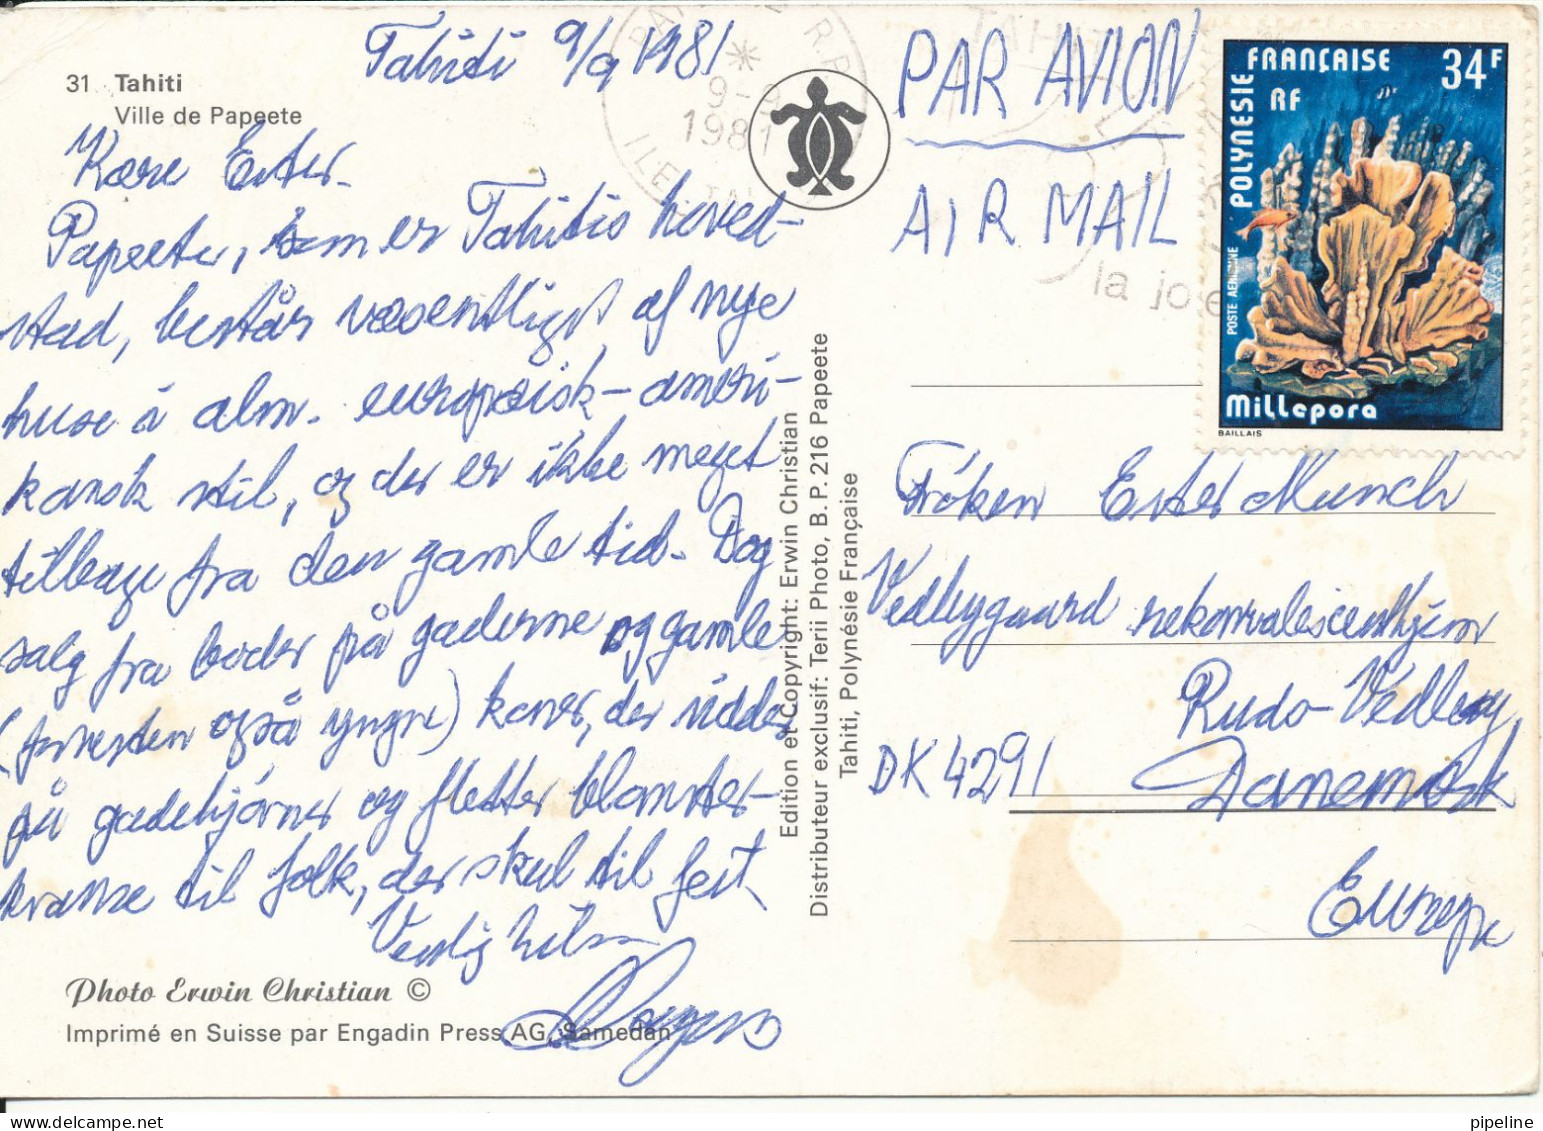 Tahiti 9/9 1981
31 Tahiti
Ville de Papeete
Kære Ester.
Papeete, som er Tahitis hoved-
stad, består væsentligst af nye
huse à alm. europæisk-ameri-
kansk stil, og der er ikke meget
tilbage fra den gamle tid. Dog
salg fra boder på gaderne og gamle
(forresten også yngre) koner, der sidder
på gadehjørner og fletter blomster-
kranse til folk, der skul til fest
Venlig hilsen
Photo Erwin Christian ©
Imprimé en Suisse par Engadin Press AG, Samedan
Edition et Copyright: Erwin Christian
Distributeur exclusif: Terii Photo, B. P. 216 Papeete
Tahiti, Polynésie Française
9-9
1981
PAR AVION
AIR MAIL
TAHITI
la joie
POLYNESIE FRANÇAISE 34F
RF
POSTE AERIENNE
Millepora
BAILLAIS
Frøken Ester Munch
Vedbygaard rekonvalescenthjem
Ruds-Vedby
DK 4291 Danemark
Europe
pipeline